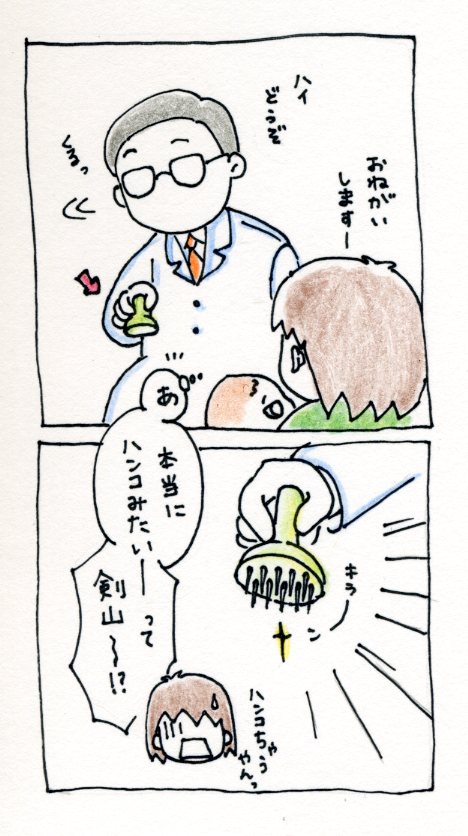 ハイ
どうぞ
くるっ
おねがい
しますー
あ
本当に
ハンコみたいーって
剣山〜!?
キラーン
ハンコちゃう
やんっ